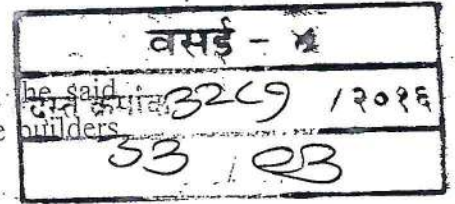 वसई -
he said
दस्त क्रमांक ३२८७ / २०१६
e builders
/